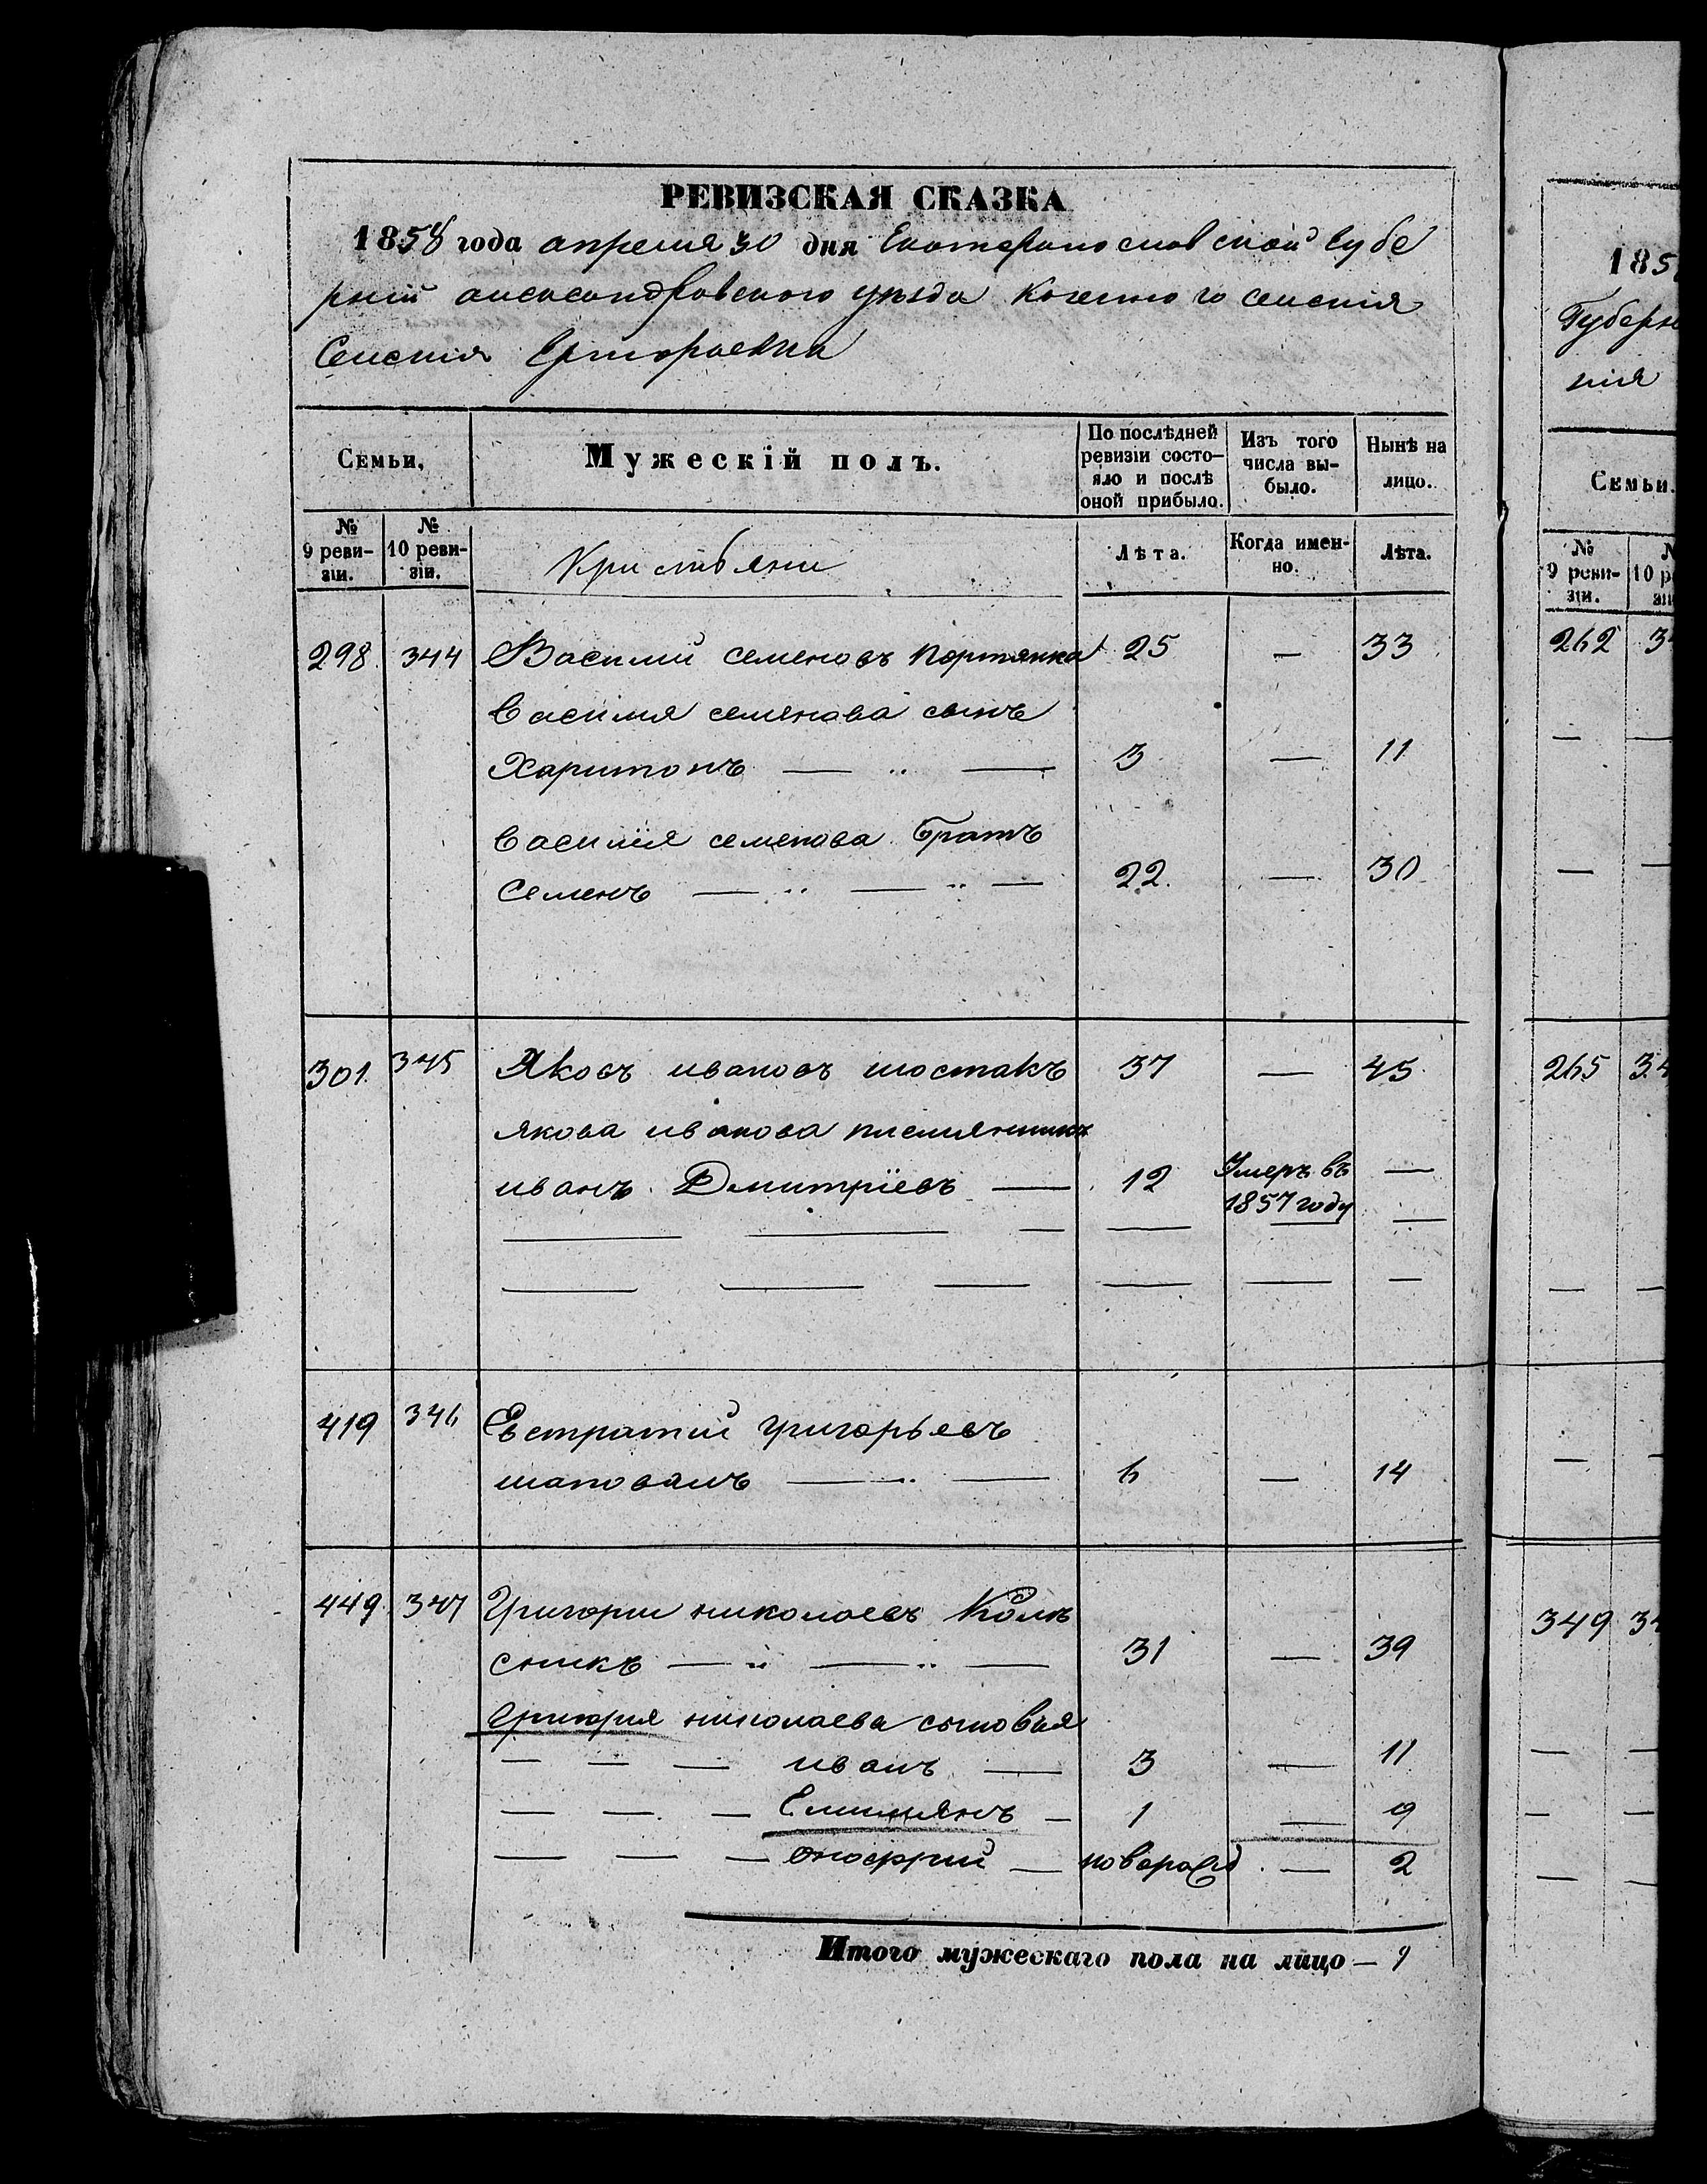 РЕВИЗСКАЯ СКАЗКА
1858 года апреля 30 дня Екатеринославской губе
рній александровского уѣзда Казенного селенія
Селенія Григорьевки
Семьи,
Мужескій полъ.
По послѣдней ревизіи состо-
яло и послѣ оной прибыло.
Изъ того числа вы-
было.
Нынѣ на лицо.
№ 9 реви-
зіи.
№ 10 реви-
зіи.
Лѣта.
Когда имен-
но.
Лѣта.
298. 344 Василий семеновъ Портянка 25 — 33
Василия семенова сынъ
Харитонъ — „ — 3 — 11
Василія семенова Братъ
Семенъ — „ — „ — 22. — 30
301. 345 Яковъ ивановъ шостакъ 37 — 45
якова иванова племянникъ
иванъ Дмитріевъ — 12 Умеръ въ —
1857 году
419 346 Евстратий григорьевъ
шаповалъ — „ — 6 — 14
449. 347 Григории николаевъКолѣ
сникъ — „ — „ — 31 — 39
Григория николаева сыновья
— — — иванъ — 3 — 11
— — — Емилиянъ — 1 — 9
— — — оноффрий — новорожд. — 2
Итого мужескаго пола на лицо — 9
185
Губерн
нія
Семьи.
№ 9 реви-
зіи.
262
265
349